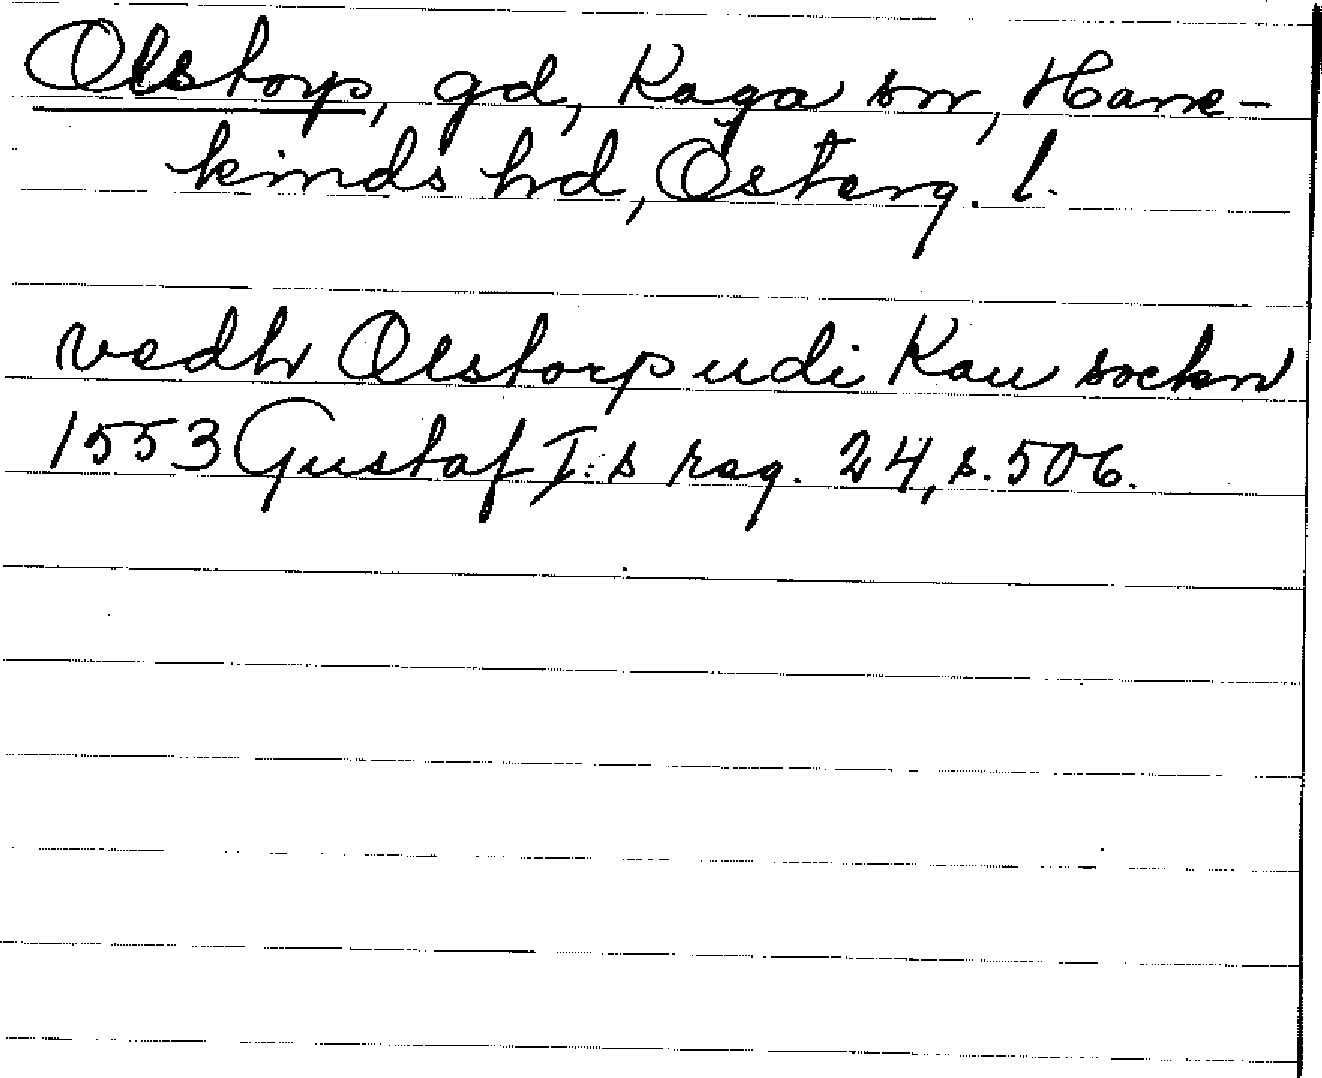 Olstorp, gd, Kaga sn, Hane-
kinds hd, Österg. l.
vedh Olstorp udi Kau sockn
1553 Gustaf I:s reg. 24, s. 506.